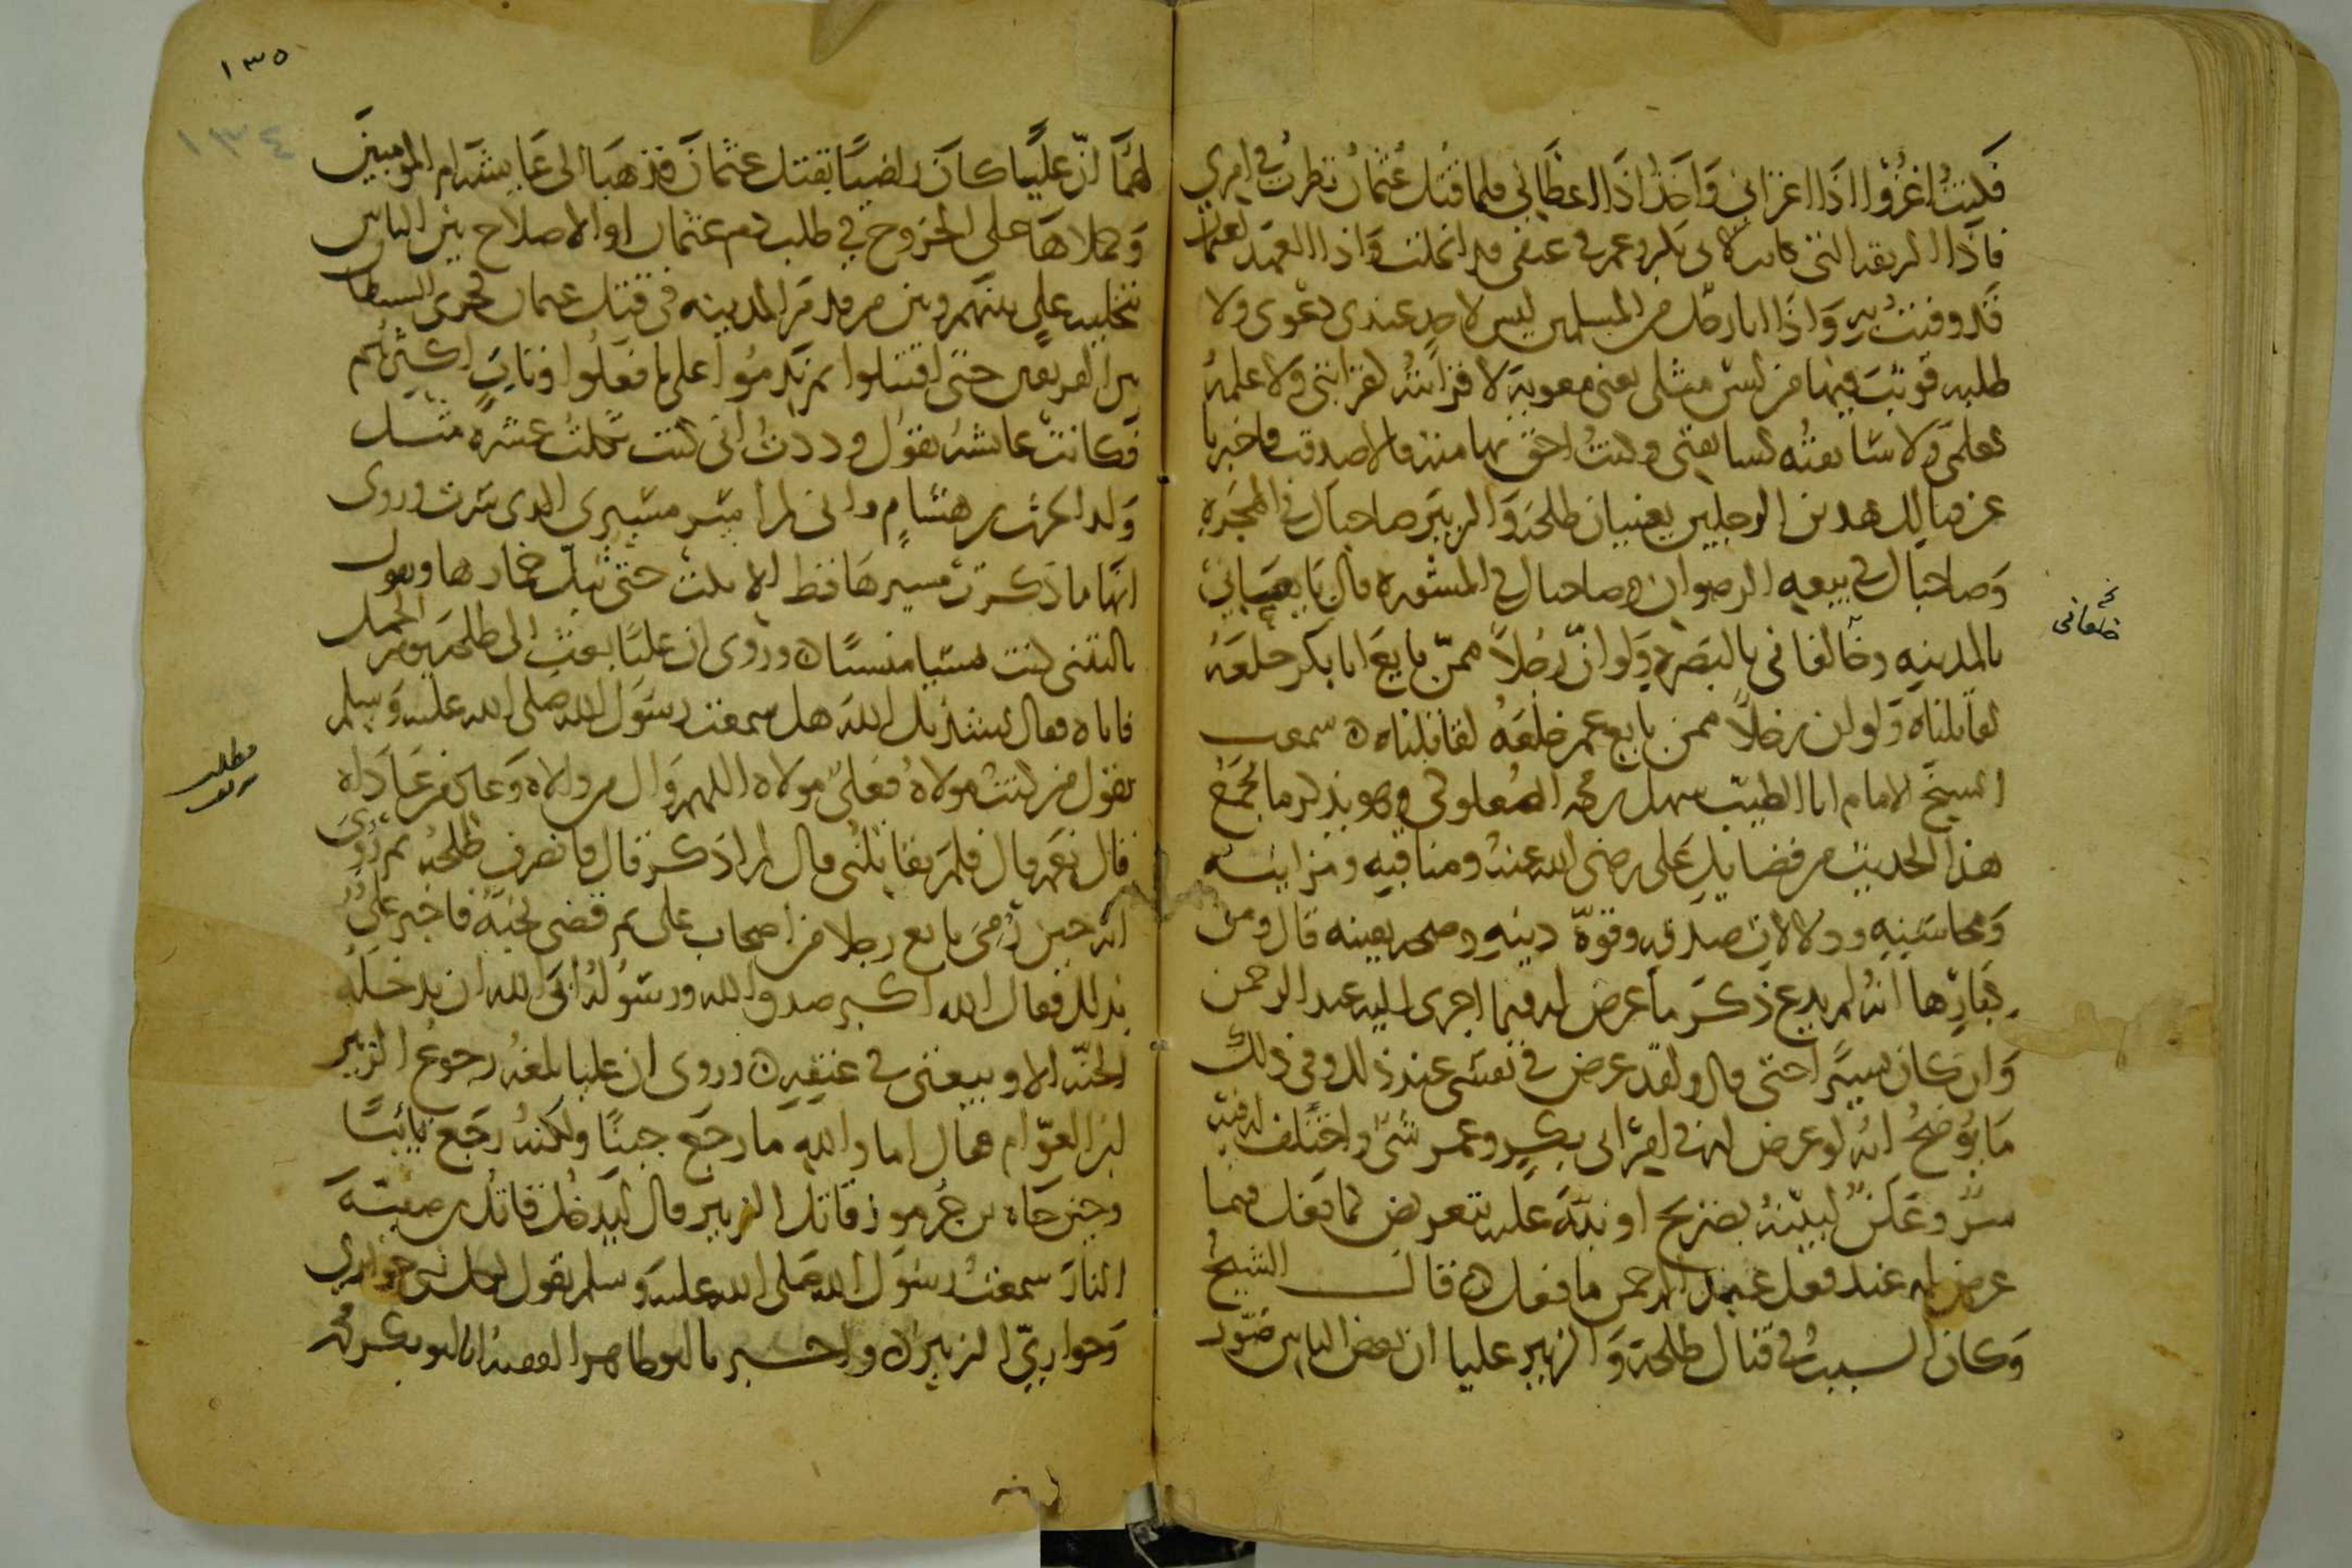 فكنت اغزوا اذا اغزاني واخذ اذا اعطاني فلما قتل عثمان نظرت في امري
فاذا الربقة التي كانت لابي بكر وعمر في عنقي قد انحلت واذا العهد لعثمان
قد وفيت به واذا انا رجل من المسلمين ليس لاحد عندي دعوى ولا
طلبه فوثب فيها من ليس مثلي يعني معوية لا قرابته كقرابتي ولا علمه
كعلمي ولا سابقته كسابقتي وكنت احق بها منه قالا صدقت فاخبرنا
عن قتالك هذين الرجلين يعنيان طلحة والزبير صاحباك في الهجرة
وصاحباك في بيعة الرضوان وصاحباك في المشورة قال بايعاني
بالمدينة وخالفاني بالبصرة ولو ان رجلا ممن بايع ابا بكر خلعه
لقاتلناه ولو ان رجلا ممن بايع عمر خلعه لقاتلناه ه سمعت
الشيخ الامام ابا الطيب سهل بن محمد الصعلوكي وهو يذكر ما يجمع
هذا الحديث من فضايل علي رضي الله عنه ومناقبه ومزاياه
ومحاسنه ودلالات صدقه وقوة دينه وصحة بيعته قال ومن
كبارها انه لم يدع ذكر ما عرض له فيما اجرى اليه عبد الرحمن
وان كان يسيرا حتى قال ولقد عرض في نفسي عند ذلك وفي ذلك
ما يوضح انه لو عرض له في امر ابي بكر وعمر شي واختلف له فيه
سر وعلن لبينه بصريح او نبه عليه بتعريض كما فعل فيما
عرض له عند فعل عبد الرحمن ما فعل ه قال الشيخ
وكان السبب في قتال طلحة والزبير عليا ان بعض الناس صور
خلعاني
١٣٥
١٣٤
لهما ان عليا كان راضيا بقتل عثمان فذهبا الى عايشة ام المومنين
وحملاها على الخروج في طلب دم عثمان او الاصلاح بين الناس
بتخلية علي بينهم وبين من قدم المدينة في قتل عثمان فجرى الشيطان
بين الفريقين حتى اقتتلوا ثم ندموا على ما فعلوا وتاب اكثرهم
فكانت عايشة تقول وددت اني كنت ثكلت عشرة مثل
ولد الحرث بن هشام واني لم اسر مسيري الذي سرت وروي
انها ما ذكرت مسيرها قط الا بكت حتى تبل خمارها وتقول
يا ليتني كنت نسيا منسيا ه وروي ان عليا بعث الى طلحة يوم الجمل
فاتاه فقال نشدتك الله هل سمعت رسول الله صلى الله عليه وسلم
يقول من كنت مولاه فعلي مولاه اللهم وال من والاه وعاد من عاداه
قال نعم قال فلم تقاتلني قال لم اذكر قال فانصرف طلحة ثم روي
انه حين رمي بايع رجلا من اصحاب علي ثم قضى نحبه فاخبر علي
بذلك فقال الله اكبر صدق الله ورسوله ابى الله ان يدخله
الجنة الا وبيعتي في عنقه ه وروي ان عليا بلغه رجوع الزبير
ابن العوام فقال اما والله ما رجع جبنا ولكنه رجع تائبا
وحين جاه بن جرموز قاتل الزبير قال ليدخل قاتل بن صفية
النار سمعت رسول الله صلى الله عليه وسلم يقول لكل نبي حواري
وحواريي الزبير ه واخبرنا ابو طاهر الفقيه انا ابو بكر محمد
مطلب